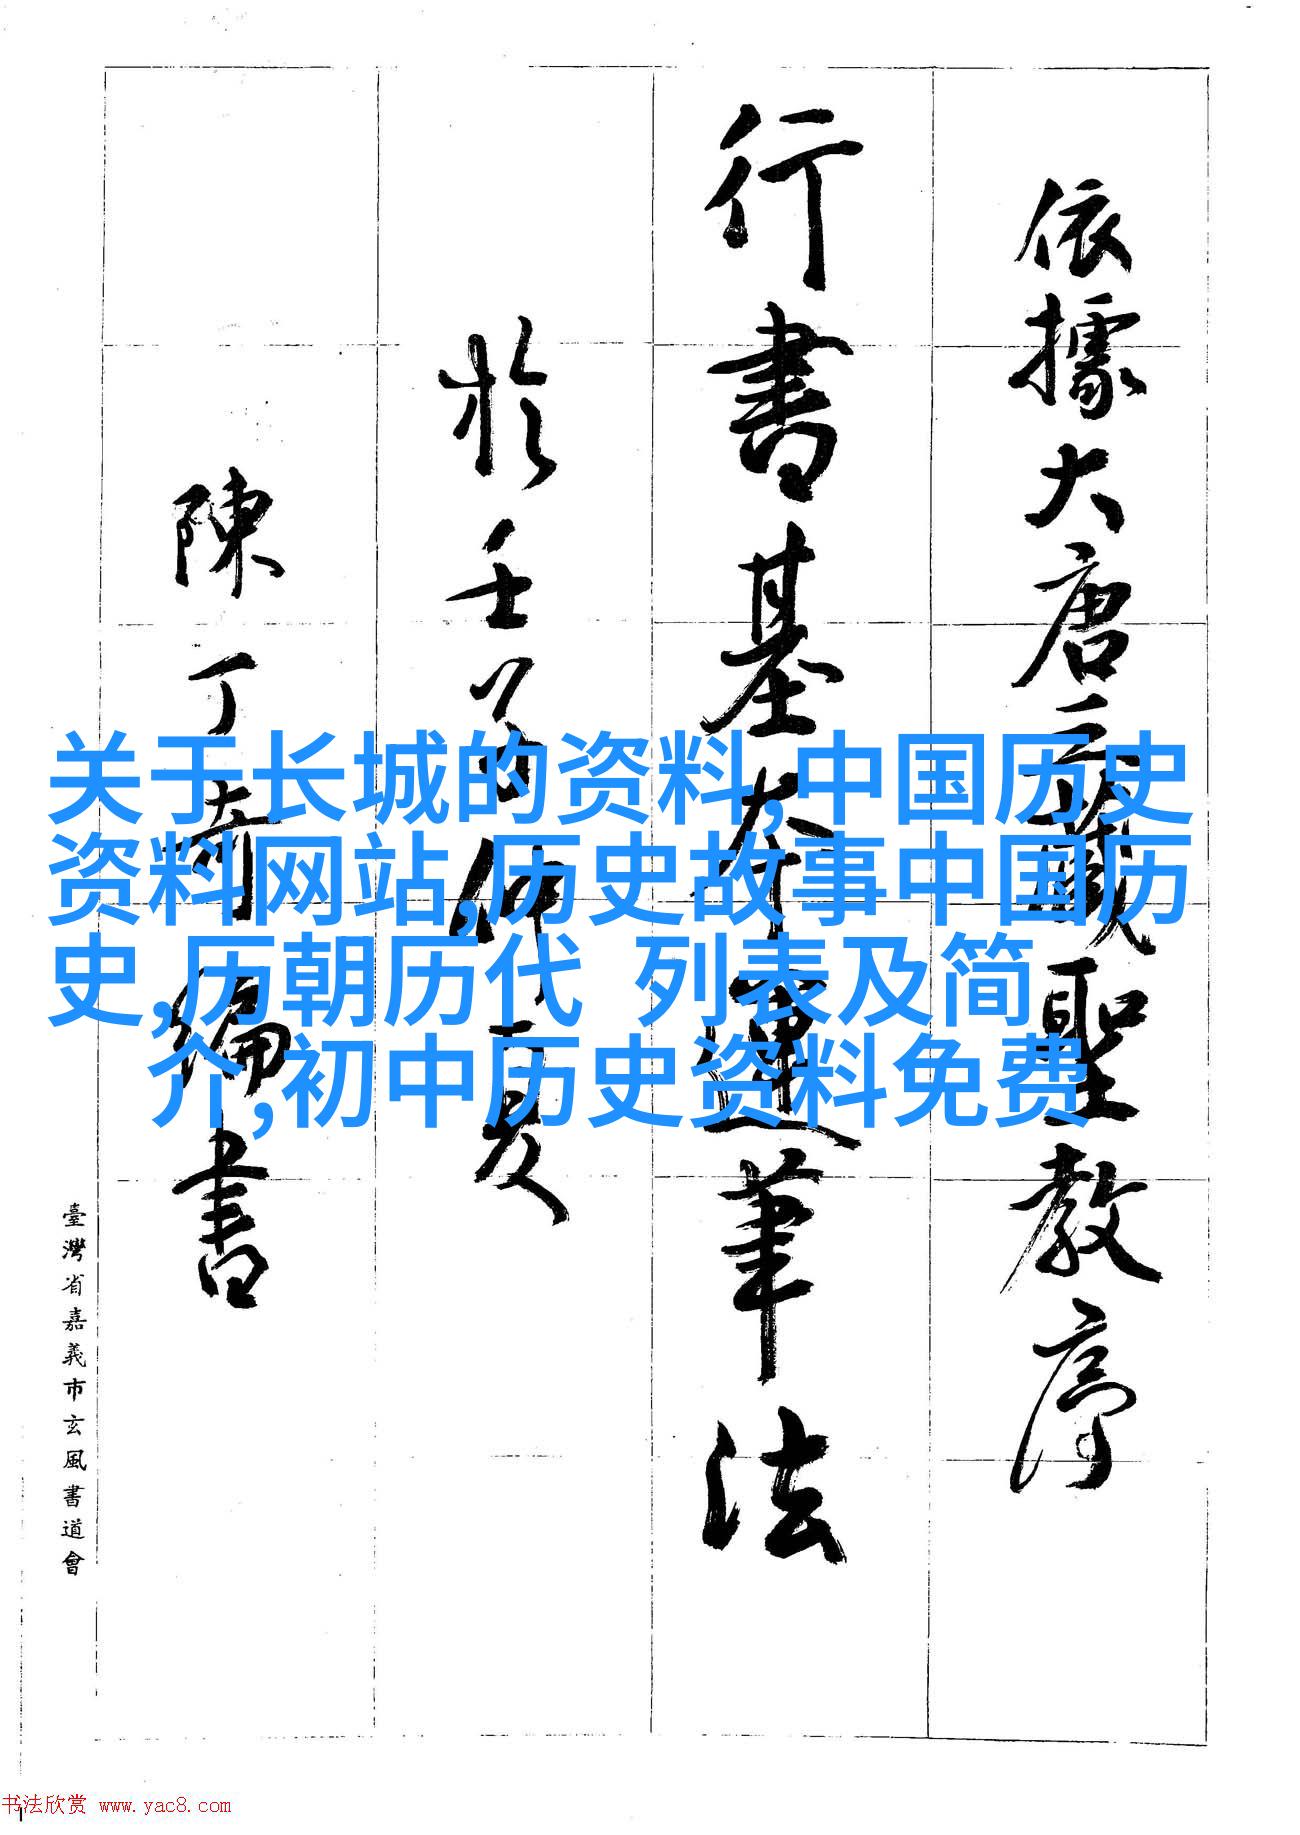 依據大唐三藏聖教序
行書基本運筆法
於壬子仲夏
陳丁奇編書
臺灣省嘉義市玄風書道會
关于长城的资料,中国历史
资料网站,历史故事中国历
史,历朝历代 列表及简
介,初中历史资料免费
书法欣赏 www.yac8.com
1